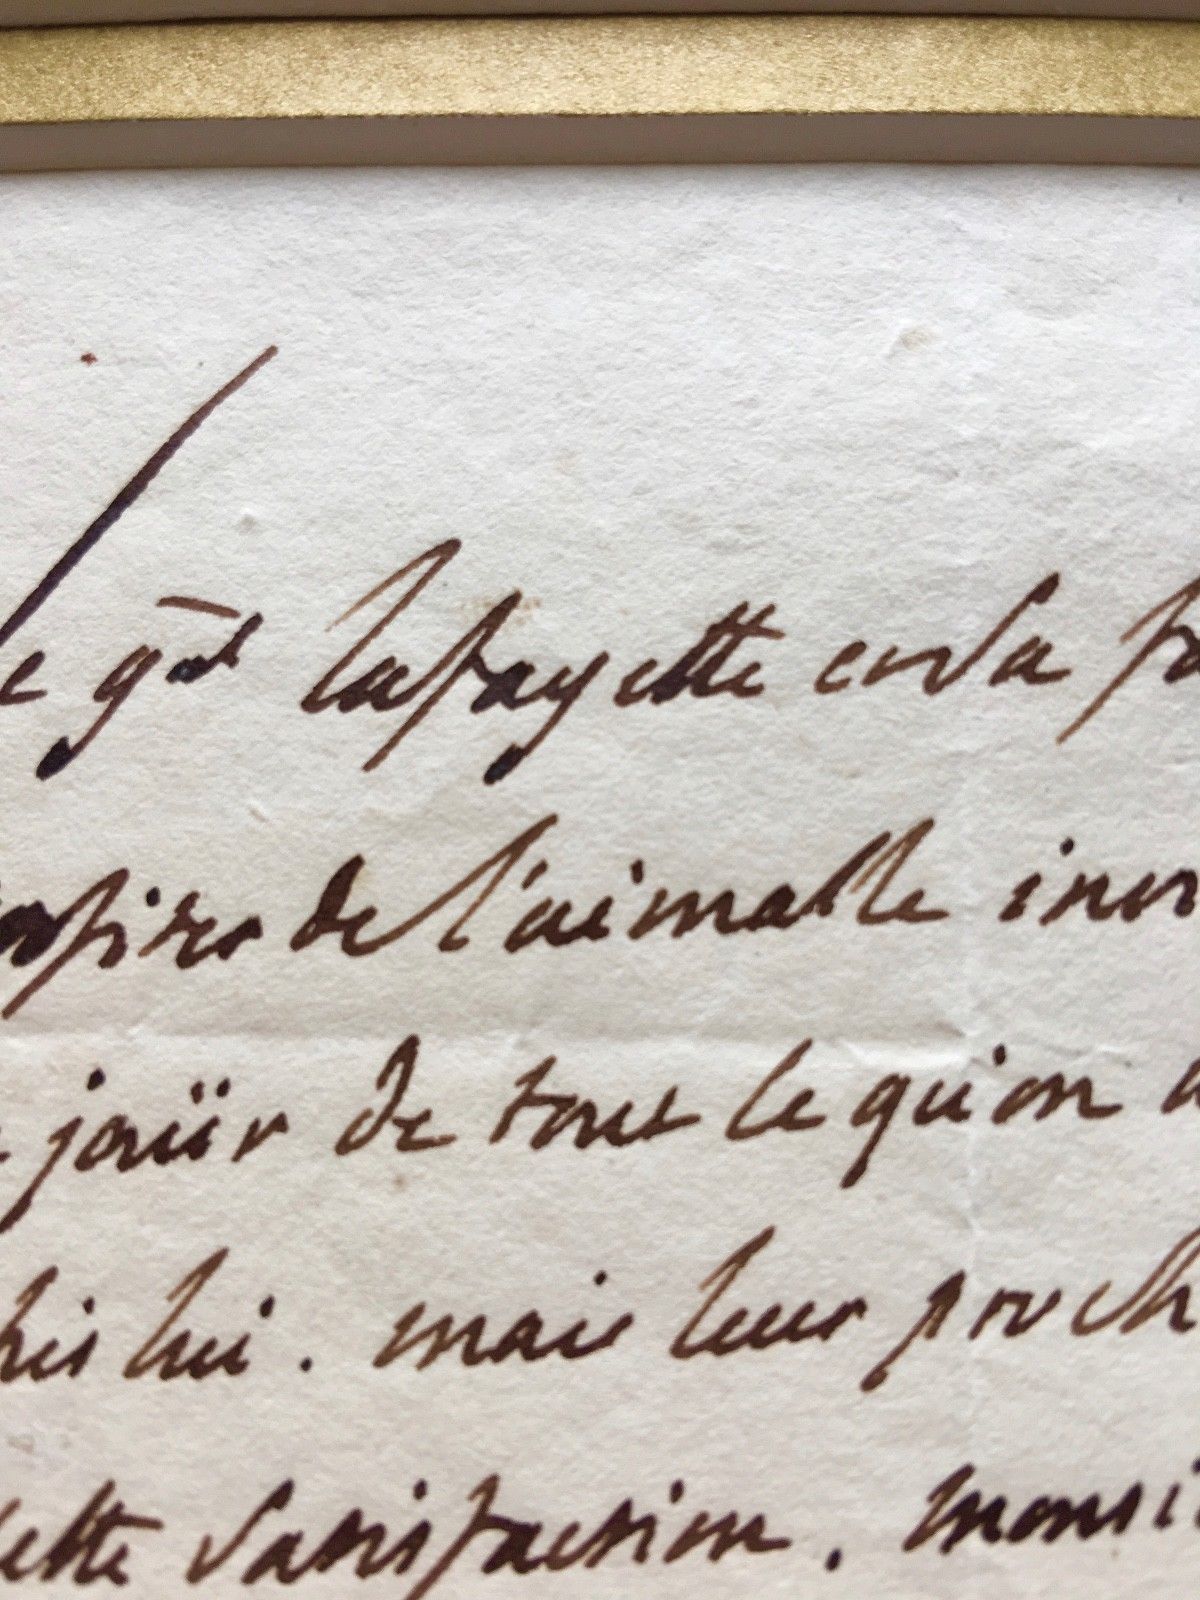 Le gāl lafayette et sa fa
profiter de l'aimable inv
jouïr de tout le qu'on a
chés lui. mais leur proch
cette satisfaction. monsi